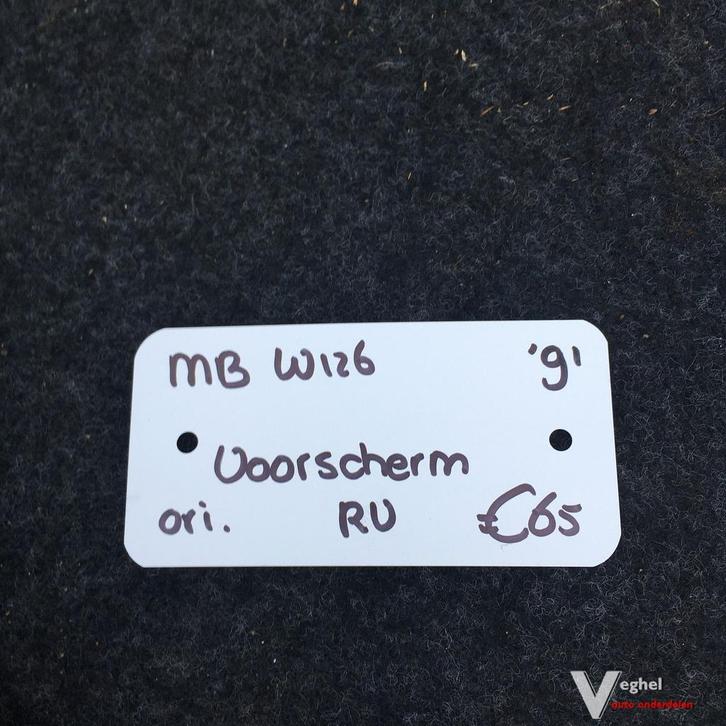 MB W126 '91
Voorscherm
ori. RV €65
Veghel
auto onderdelen